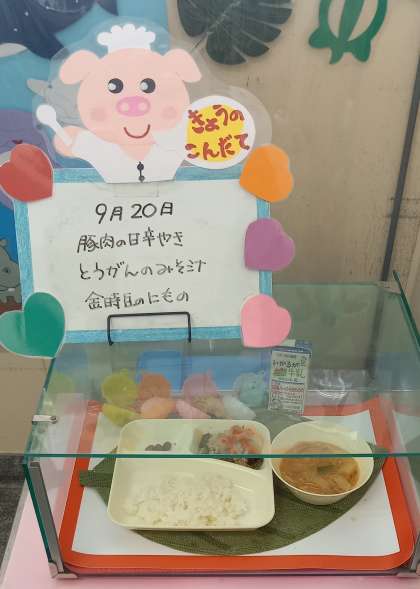 きょうの
こんだて
9月20日
豚肉の甘辛やき
とうがんのみそ汁
金時豆のにもの
牛乳